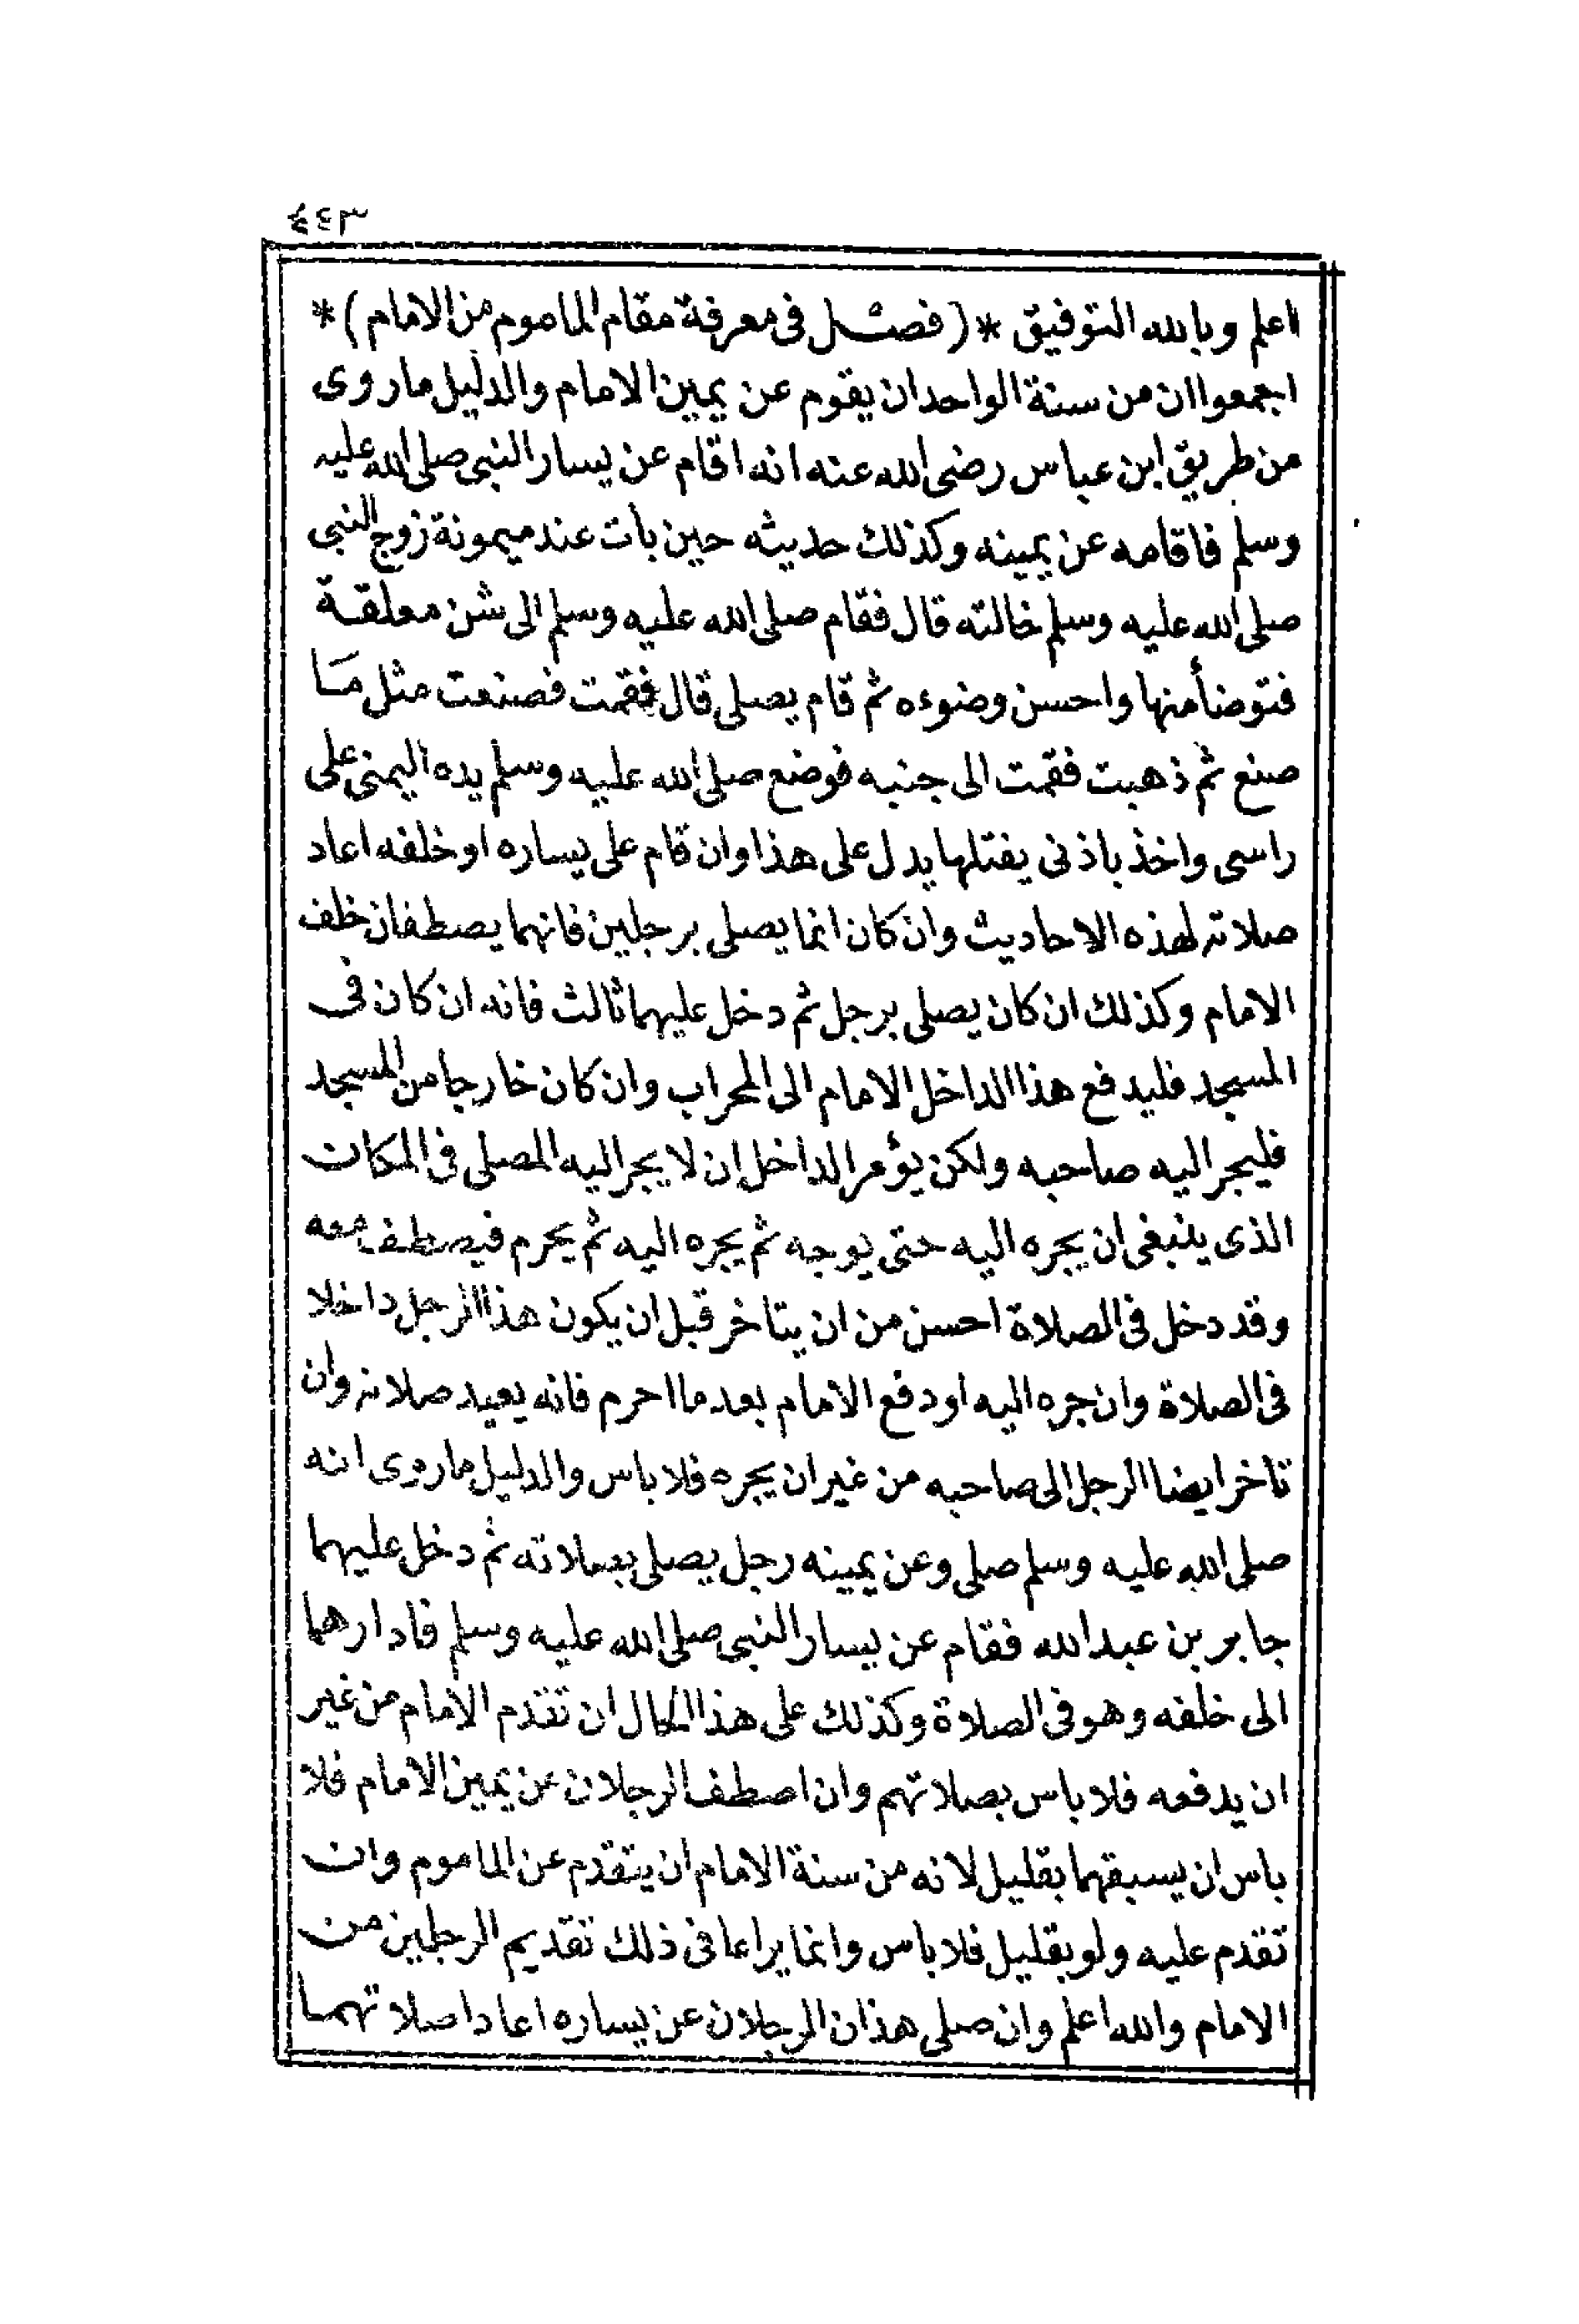 ٤٤٣
اعلم وبالله التوفيق *(فصل فى معرفة مقام الماموم من الامام)*
اجمعوا ان من سنة الواحد ان يقوم عن يمين الامام والدليل ما روى
من طريق ابن عباس رضى الله عنه انه اقام عن يسار النبى صلى الله عليه
وسلم فاقامه عن يمينه وكذلك حديثه حين بات عند ميمونة زوج النبى
صلى الله عليه وسلم خالته قال فقام صلى الله عليه وسلم الى شن معلقة
فتوضأ منها واحسن وضوءه ثم قام يصلى قال فقمت فصنعت مثل مَا
صنع ثم ذهبت فقمت الى جنبه فوضع صلى الله عليه وسلم يده اليمنى على
راسى واخذ باذنى يفتلها يدل على هذا وان قام على يساره او خلفه اعاد
صلاته لهذه الاحاديث وان كان انما يصلى برجلين فانهما يصطفان خلف
الامام وكذلك ان كان يصلى برجل ثم دخل عليهما ثالث فانه ان كان فى
المسجد فليدفع هذا الداخل الامام الى المحراب وان كان خارجا من المسجد
فليجر اليه صاحبه ولكن يؤمر الداخل ان لا يجر اليه المصلى فى المكان
الذى ينبغى ان يجره اليه حتى يوجه ثم يجره اليه ثم يحرم فيصطف معه
وقد دخل فى الصلاة احسن من ان يتاخر قبل ان يكون هذا الرجل داخلا
فى الصلاة وان جره اليه او دفع الامام بعد ما احرم فانه يعيد صلاته وان
تاخر ايضا الرجل الى صاحبه من غير ان يجره فلا باس والدليل ما روى انه
صلى الله عليه وسلم صلى وعن يمينه رجل يصلى بصلاته ثم دخل عليهما
جابر بن عبد الله فقام عن يسار النبى صلى الله عليه وسلم فادارهما
الى خلفه وهو فى الصلاة وكذلك على هذا الحال ان تقدم الامام من غير
ان يدفعه فلا باس بصلاتهم وان اصطف الرجلان عن يمين الامام فلا
باس ان يسبقهما بقليل لانه من سنة الامام ان يتقدم عن الماموم وان
تقدم عليه ولو بقليل فلا باس وانما يراعا فى ذلك تقديم الرجلين من
الامام والله اعلم وان صلى هذان الرجلان عن يساره اعادا صلاتهما